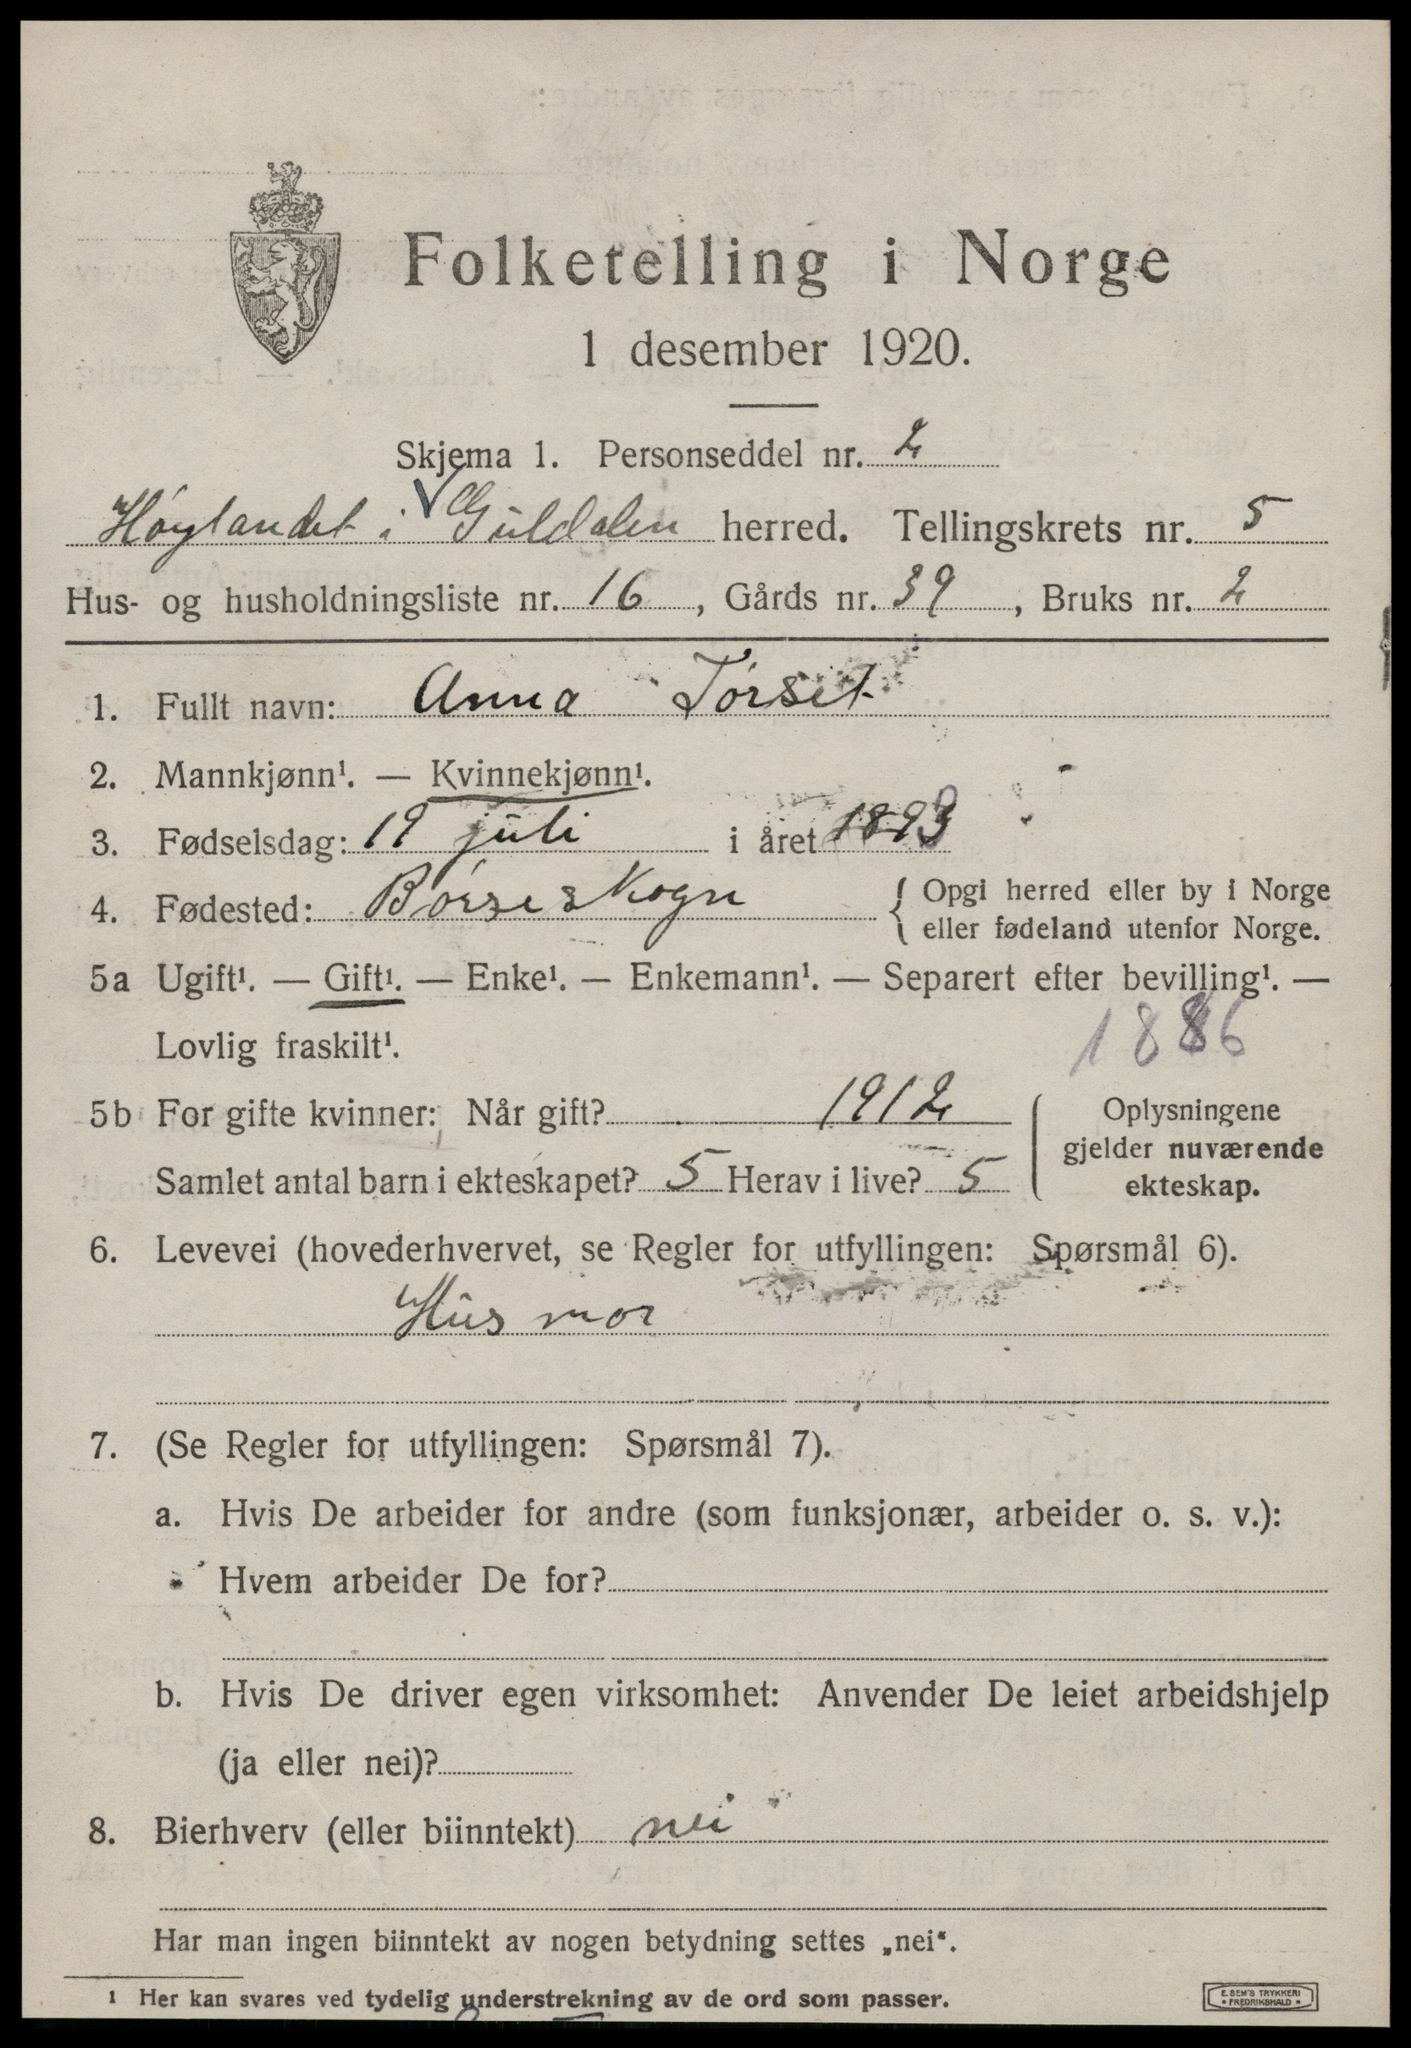 Folketelling i Norge
1 desember 1920.
Skjema 1. Personseddel nr. 2
Høylandet i Guldalen herred. Tellingskrets nr. 5
Hus- og husholdningsliste nr. 16, Gårds nr. 39, Bruks nr. 2
1. Fullt navn: Anna Tørset
2. Mannkjønn¹. — Kvinnekjønn¹.
3. Fødselsdag: 19 juli i året 1893
4. Fødested: Børseskogn { Opgi herred eller by i Norge
eller fødeland utenfor Norge.
5a Ugift¹. — Gift¹. — Enke¹. — Enkemann¹. — Separert efter bevilling¹. —
Lovlig fraskilt¹. 1886
5b For gifte kvinner: Når gift? 1912
Samlet antal barn i ekteskapet? 5 Herav i live? 5
Oplysningene
gjelder nuværende
ekteskap.
6. Levevei (hovederhvervet, se Regler for utfyllingen: Spørsmål 6).
Husmor
7. (Se Regler for utfyllingen: Spørsmål 7).
a. Hvis De arbeider for andre (som funksjonær, arbeider o. s. v.):
Hvem arbeider De for?
b. Hvis De driver egen virksomhet: Anvender De leiet arbeidshjelp
(ja eller nei)?
8. Bierhverv (eller biinntekt) nei
Har man ingen biinntekt av nogen betydning settes „nei“.
¹ Her kan svares ved tydelig understrekning av de ord som passer.
E. SEM'S TRYKKERI
FREDRIKSHALD